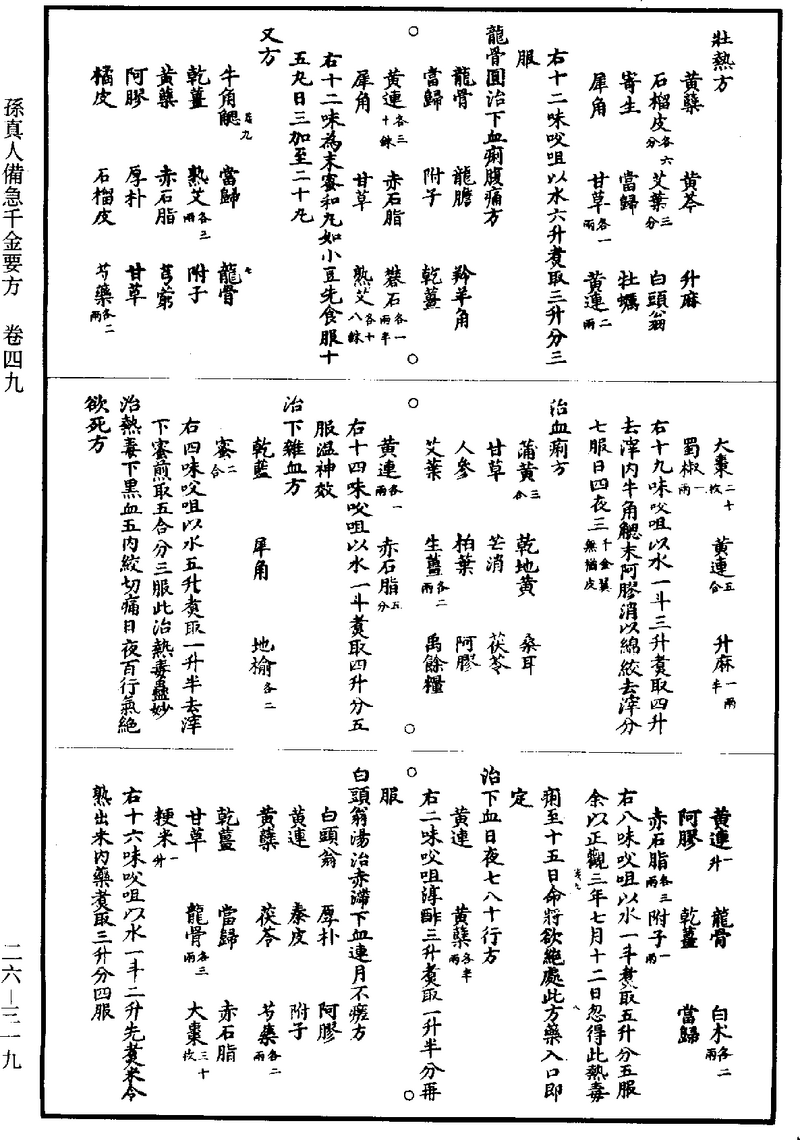 壯熱方
黃蘗 黃芩 升麻
石榴皮各六分 艾葉三分 白頭翁
寄生 當歸 牡蠣
犀角 甘草各一兩 黃連二兩
右十二味㕮咀以水六升煑取三升分三
服
龍骨圓治下血痢腹痛方
龍骨 龍膽 羚羊角
當歸 附子 乾薑
黃連各三十銖 赤石脂 礬石各一兩半
犀角 甘草 熟艾各十八銖
右十二味為末蜜和丸如小豆先食服十
五丸日三加至二十丸
又方
牛角䚡 當歸 龍骨
乾薑 熟艾各三兩 附子
黃蘗 赤石脂 芎藭
阿膠 厚朴 甘草
橘皮 石榴皮 芍藥各二兩
大棗二十枚 黃連五合 升麻一兩半
蜀椒一兩
右十九味㕮咀以水一斗三升煑取四升
去滓內牛角䚡末阿膠消以綿絞去滓分
七服日四夜三千金翼無橘皮
治血痢方
蒲黃三合 乾地黃 桑耳
甘草 芒消 茯苓
人參 柏葉 阿膠
艾葉 生薑各二兩 禹餘糧
黃連各一兩 赤石脂五分
右十四味㕮咀以水一斗煑取四升分五
服溫神效
治下雜血方
乾藍 犀角 地榆各二
蜜二合
右四味㕮咀以水五升煑取一升半去滓
下蜜煎取五合分三服此治熱毒蠱妙
治熱毒下黑血五內絞切痛日夜百行氣絕
欲死方
黃連一升 龍骨 白朮各二兩
阿膠 乾薑 當歸
赤石脂各三兩 附子一兩
右八味㕮咀以水一斗煑取五升分五服
余以正觀三年七月十二日忽得此熱毒
痢至十五日命將欲絕處此方藥入口即
定
治下血日夜七八十行方
黃連 黃蘗各半兩
右二味㕮咀淳酢三升煑取一升半分再
服
白頭翁湯治赤滯下血連月不瘥方
白頭翁 厚朴 阿膠
黃連 秦皮 附子
黃蘗 茯苓 芍藥各二兩
乾薑 當歸 赤石脂
甘草 龍骨各三兩 大棗三十枚
粳米一升
右十六味㕮咀以水一斗二升先煑米令
熟出米內藥煑取三升分四服
孫真人備急千金要方 卷四九
二六—三一九